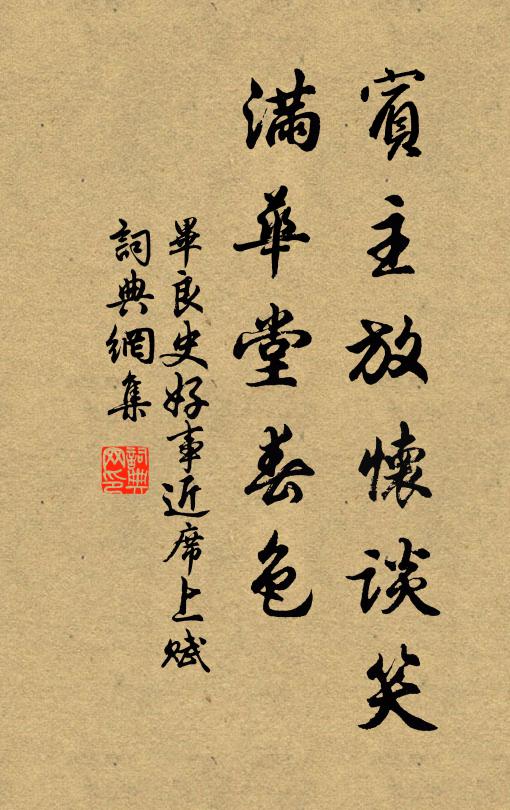 賓主放懷談笑
滿華堂春色
畢良史好事近席上賦
詞典網集
詞典网印